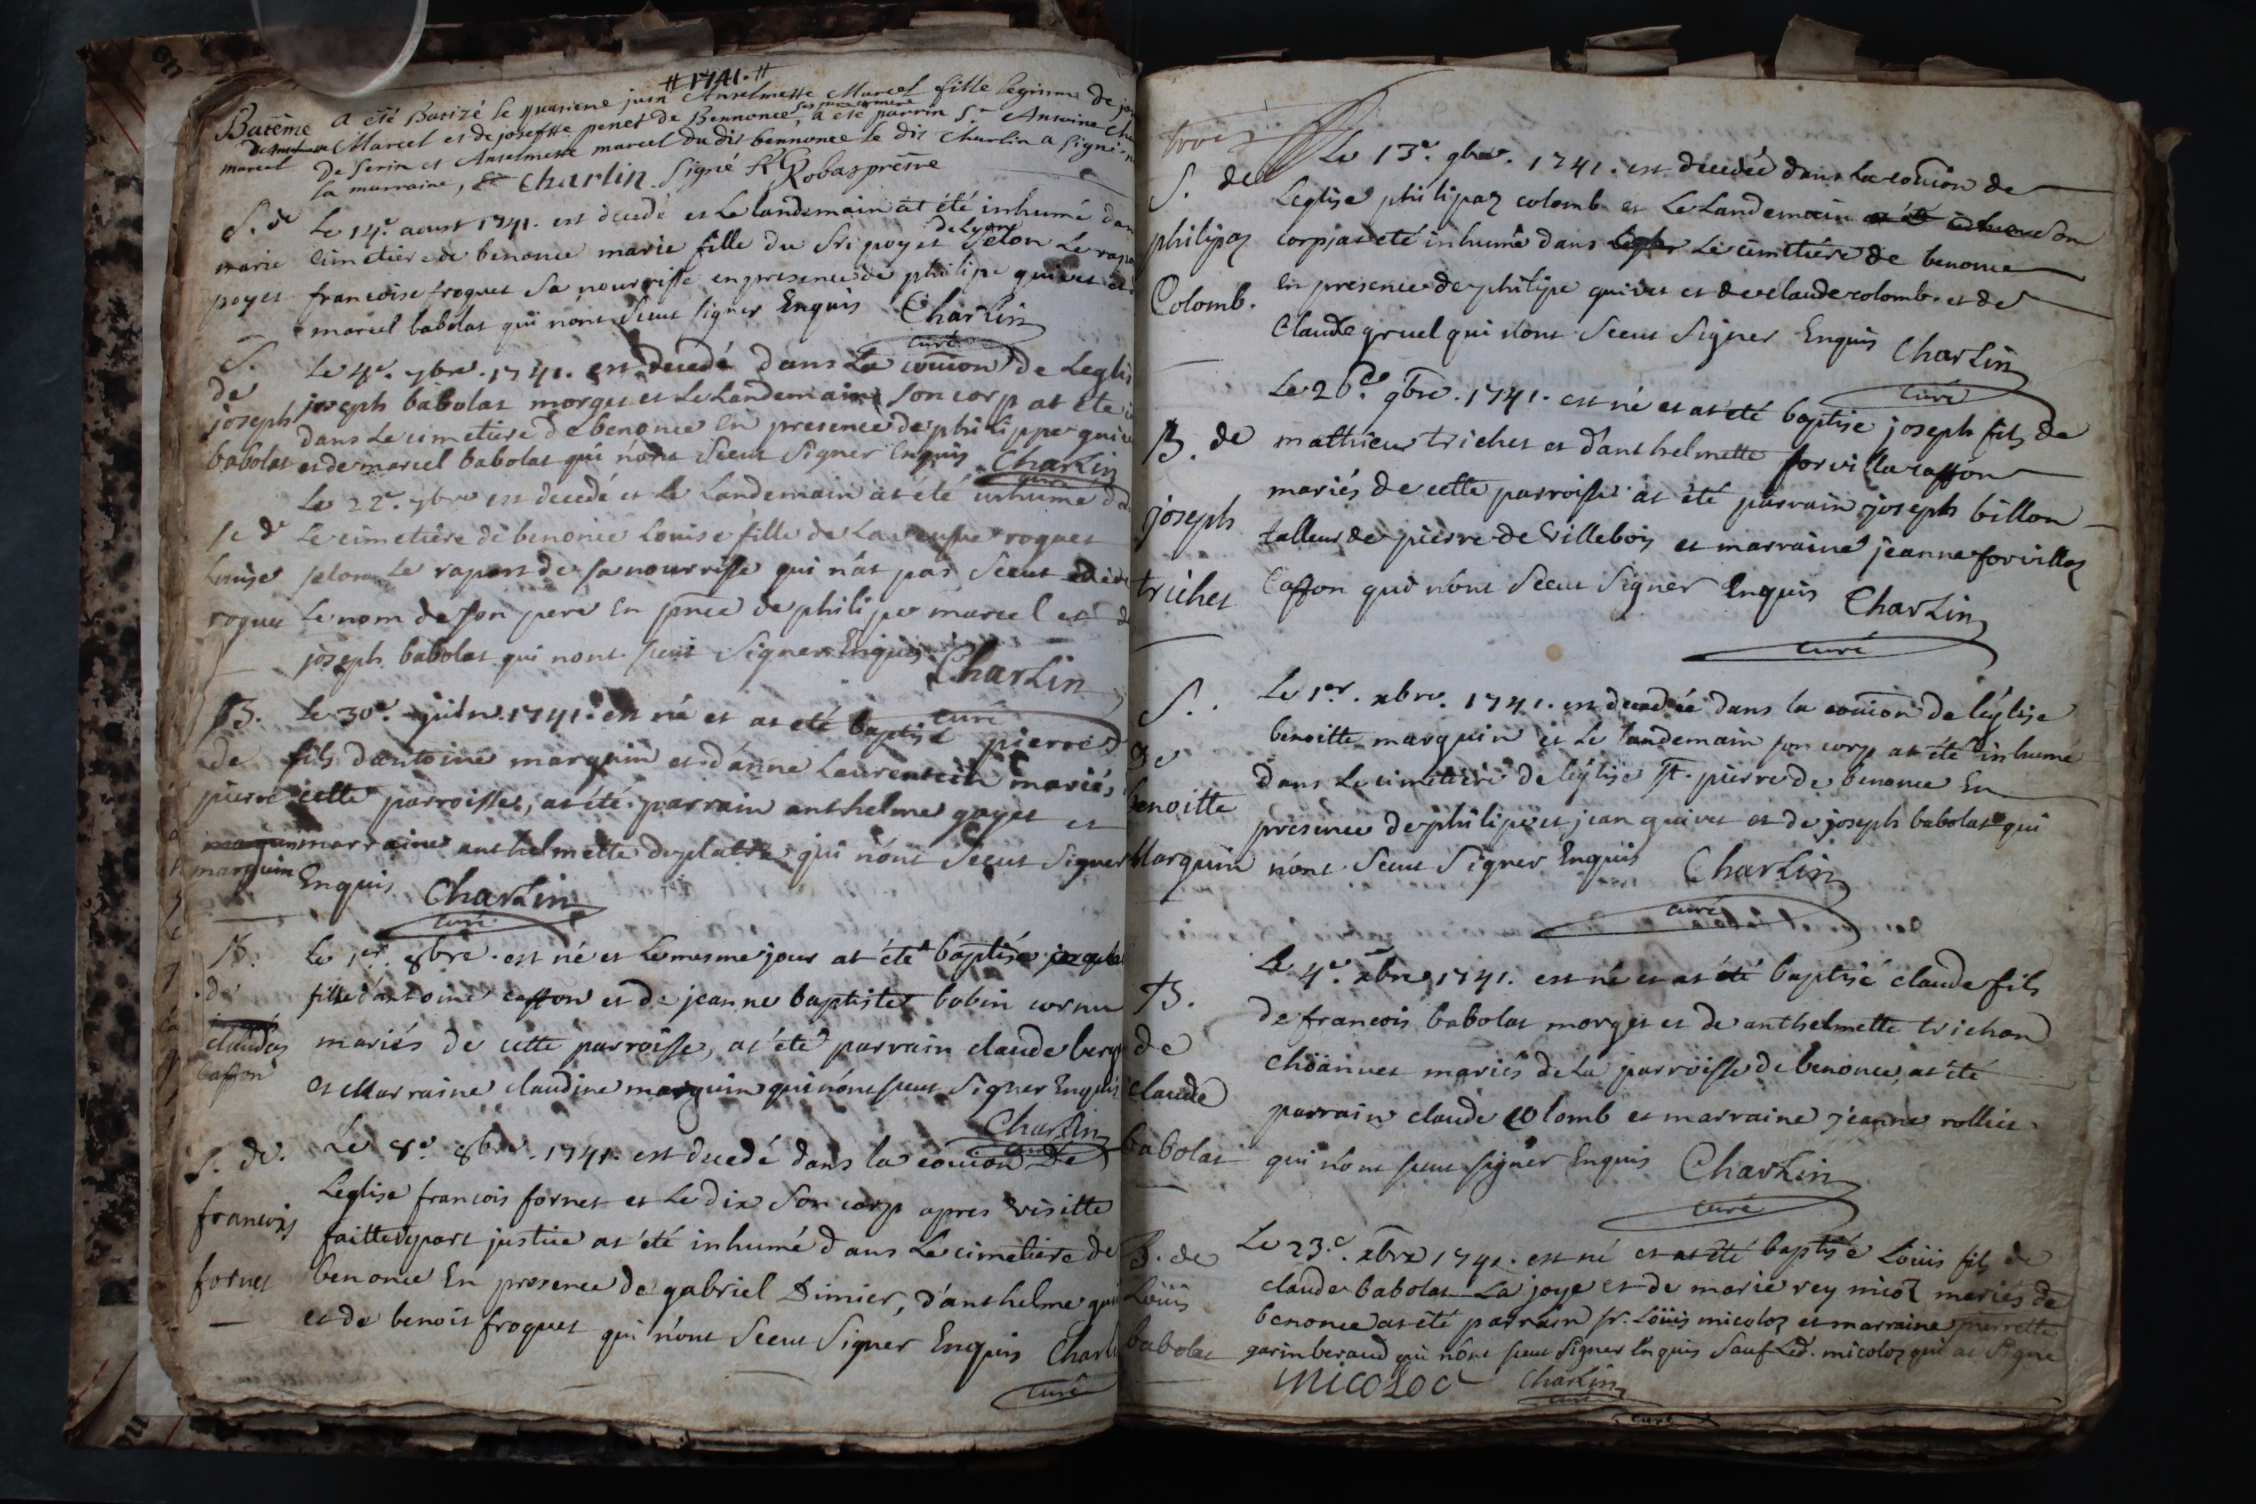 # 1741. #
Batême A été Batizé le quatrieme juin Anselmette Marcel fille legitime De
Marcel et de josephte penet de Bennonce, a été parrin Sr. Antoine
marcel De Serin et Anselmette marcel du dit bennonce le dit Charlin a signé
la marraine, Charlin signé
S. de Le 14e. aoust 1741. est decedé et Le landemain at été inhumé dan
marie cimetiere de benonce marie fille du Sr poyet de Lyon Selon Le
poyet francoise froquet Sa nourrisse en presence de philipe quivet et
marcel babolat qui nont Sceut signer Enquis Charlin
curé
S. Le 4e. 7bre. 1741. est decedé dans La comion de Legli
de joseph babolat morget et Le Landemain Son corp at été
joseph dans Le cimetiere de benonce En presence de philippe
babolat et de marcel babolat qui nont Sceut Signer Enquis Charlin
curé
Le 22e. 7bre est decedé et Le Landemain at été inhumé
S. de Le cimetiere de benonce Louise fille de La veufve roquet
Louise selon Le raport de sa nourrisse qui n'at pas Sceut
roquet Le nom de son pere En pnce de philipe marcel et d
joseph babolat qui nont sceut Signer Enquis Charlin
curé
B. Le 30e. 1741. est né et at été baptisé pierre
de fils d'antoine marquin et d'anne Laurencin mariés
pierre cette parroisse, at été parrain anthelme gayet et
marraine anthelmette deplatre qui n'ont Sceut Signer
marquin Enquis Charlin
curé
B. Le 1er. 8bre. est né et Le mesme jour at été baptisé
de fille d'antoine caffon et de jeanne baptiste bobin cornu
claudas mariés de cette parroisse, at été parrain claude
caffon et Marraine claudine marquin qui n'ont sceut Signer Enquis
Charlin
curé
S. de Le 8e. 8bre. 1741. est decedé dans la comion De
Leglise francois fornet et Le dix Son corp apres visitte
francois faitte depart justice at été inhumé dans Le cimetiere de
fornet benonce En presence de gabriel Dimier, d'anthelme
et de benoit froquet qui n'ont Sceut Signer Enquis
curé
Le 13e. 9bre. 1741. est decedée dans La comion de
S. de Leglise philipaz colomb et Le Landemain Son
philipaz corp at eté inhumé dans Le cimetiére de benonce
Colomb. En presence de philipe quivet et de claude colomb et de
Claude gruel qui nont Sceut Signer Enquis Charlin
curé
Le 26e. 9bre. 1741. est né et at eté baptisé joseph fils de
B. de mathieu trichet et d'anthelmette forvilla caffon
mariés de cette parroisse at été parrain joseph billon
joseph talleur de pierre de Villebois et marraine jeanne forvillaz
trichet Caffon qui n'ont Sceut Signer Enquis Charlin
curé
S. Le 1er. xbre. 1741. est decedée dans la comion de l'église
de benoitte marquin et Le landemain son corp at été inhumé
benoitte dans Le cimetiere de l'église St. pierre de benonce En
presence de philipe et jean quivet et de joseph babolat qui
Marquin n'ont Sceut Signer Enquis Charlin
curé
B. Le 4e. xbre 1741. est né et at été baptisé claude fils
de de francois babolat morget et de anthelmette trichon
choannet mariés de La parroisse de benonce, at été
claude parrain claude Colomb et marraine jeanne rollier
babolat qui n'ont sceut signer Enquis Charlin
curé
B. de Le 23e. xbre 1741. est né et at été baptisé Loüis fils de
Loüis claude babolat La joye et de marie rey micol mariés de
benonce at été parrain sr. Loüis micoloz et marraine pierrette
babolat garin beraud qui n'ont sceut Signer Enquis Sauf Led. micoloz qui at Signé
Charlin
curé
curé